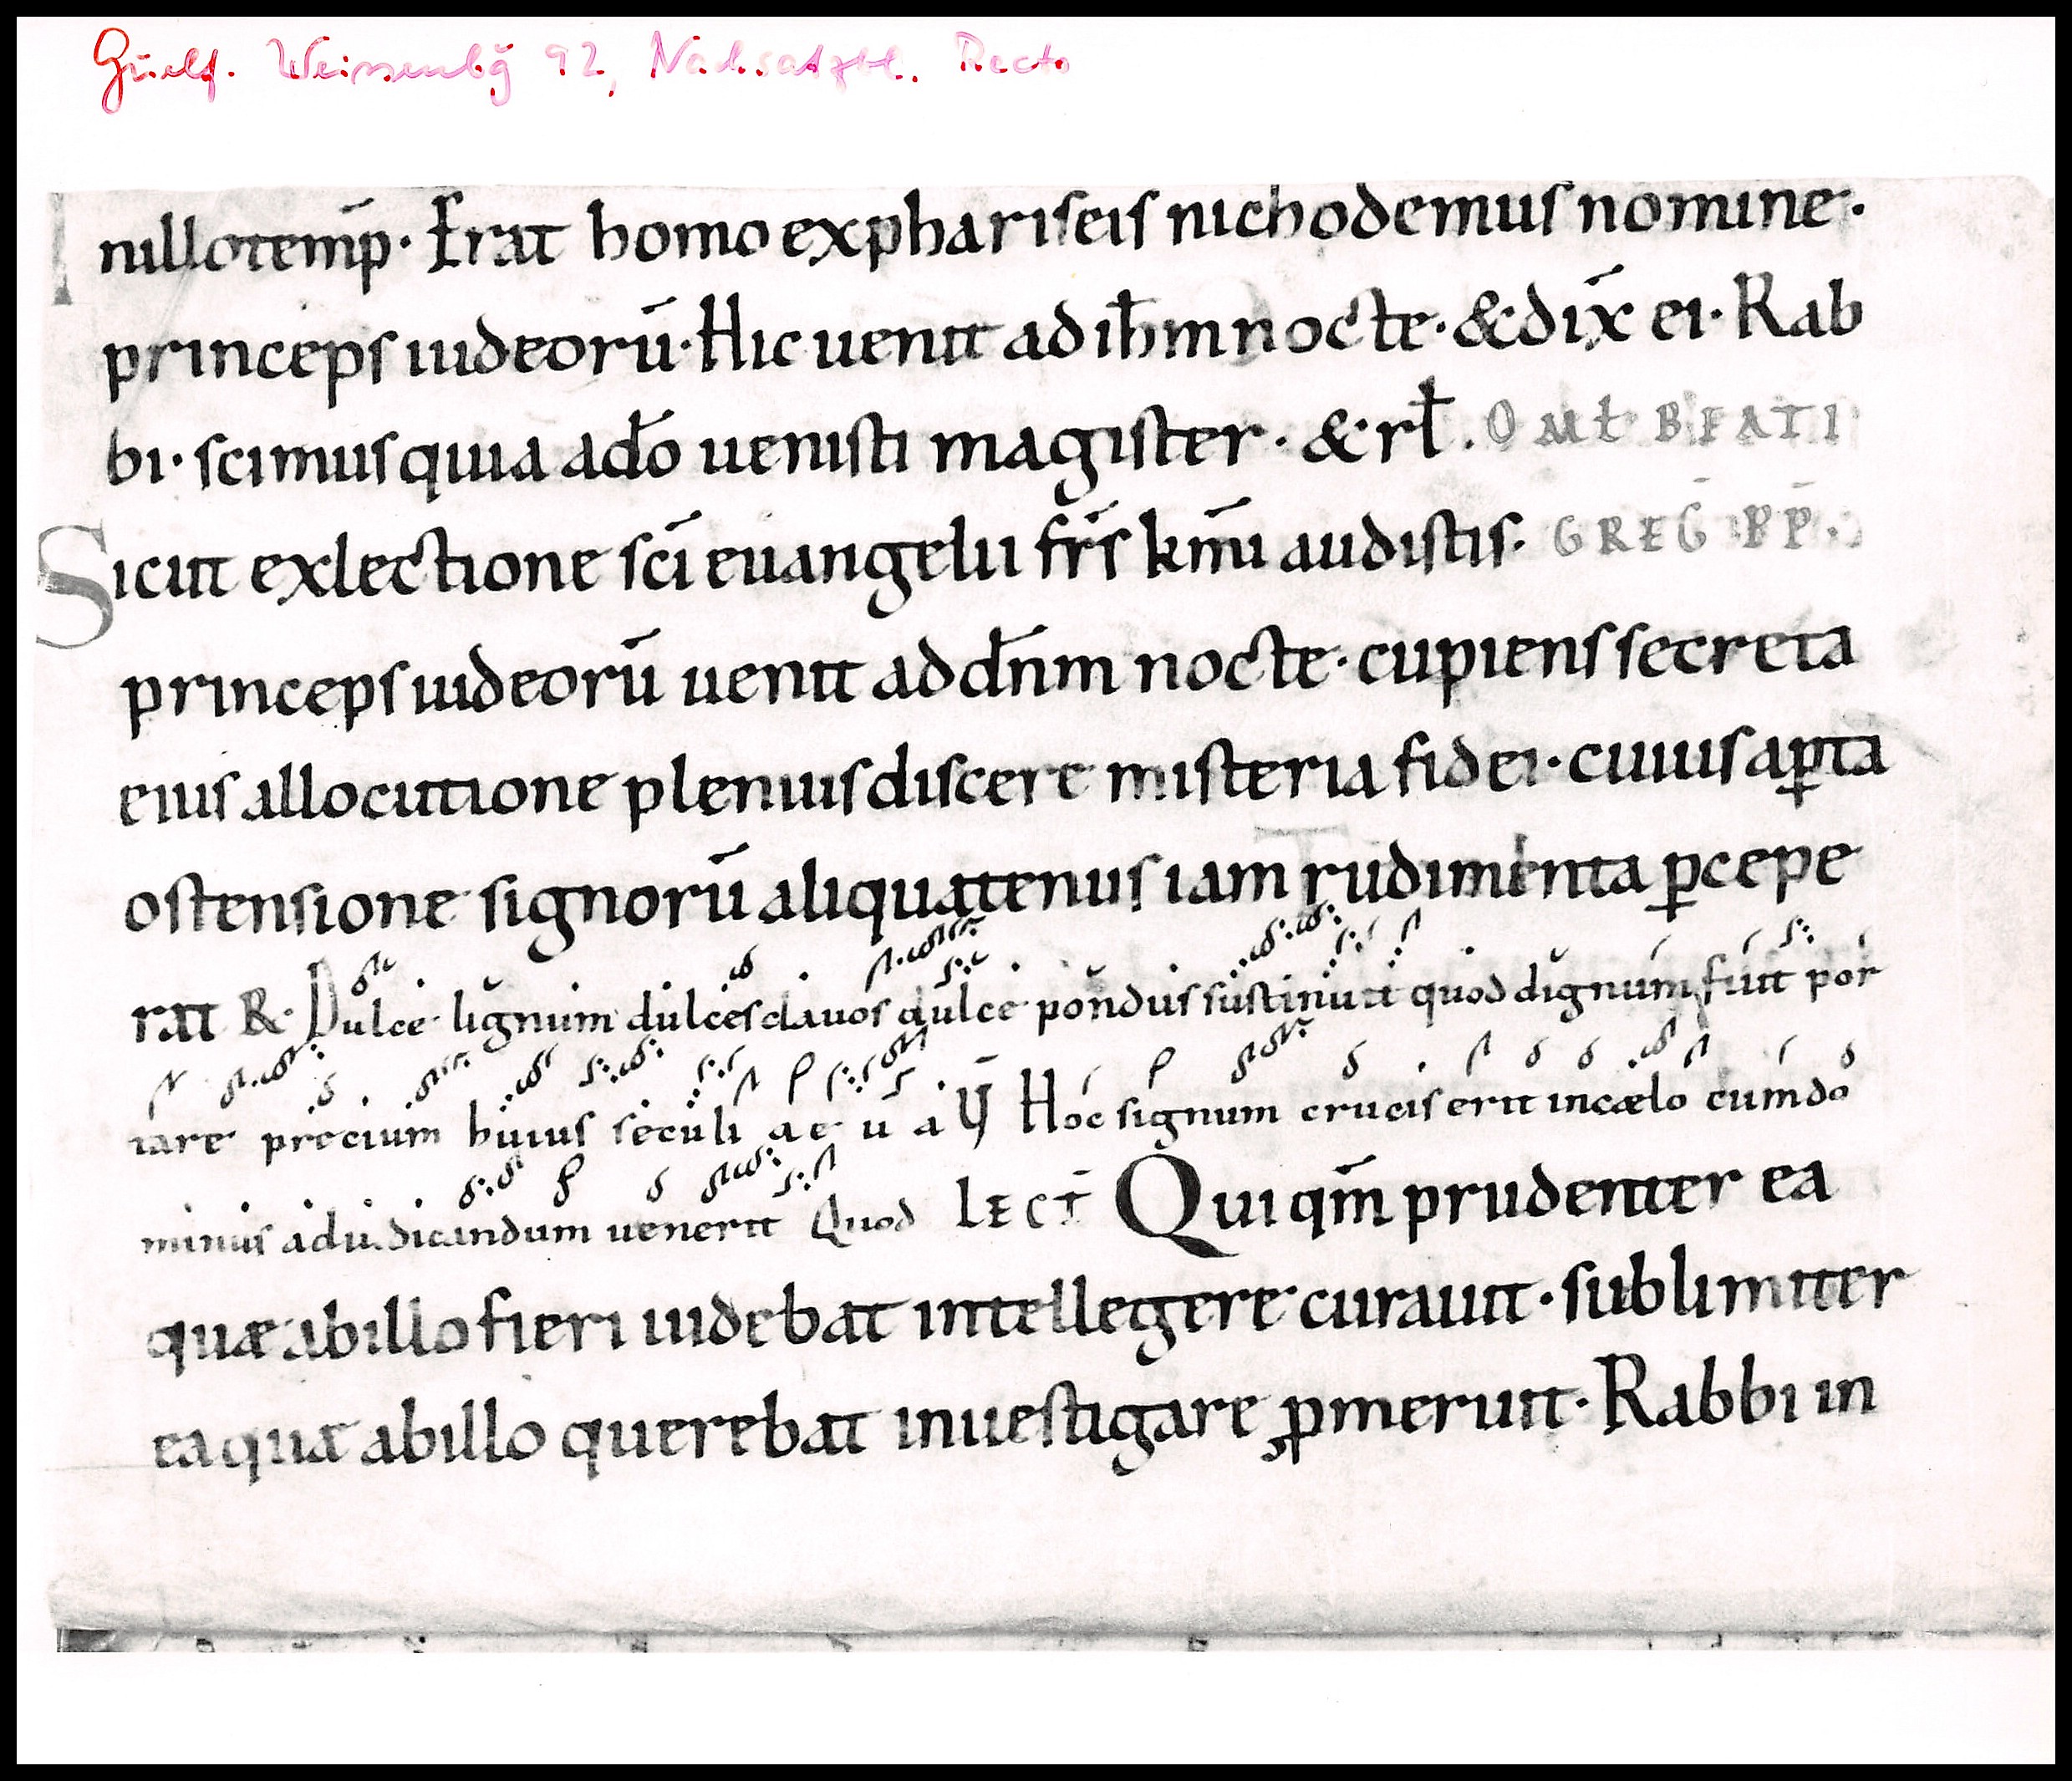 Guelf. Weissenbg 92, Nachsatzbl. Recto
In illo temp̄. Erat homo ex phariseis nichodemus nomine.
princeps iudeorū. Hic uenit ad ih̄m nocte. & dix̄ ei. Rab
bi. scimus quia a do̅ uenisti magister. & rł. OMŁ BEATI
Sicut ex lectione sc̄i euangelii fr̄s km̄i audistis. GREḠ PP̄.
princeps iudeorū uenit ad dn̄m nocte. cupiens secreta
eius allocutione plenius discere misteria fidei. cuius aꝑta
ostensione signorū aliquatenus iam rudimenta ꝑcepe
rat R. Dulce lignum dulces clauos dulce pondus sustinuit quod dignum fuit por
tare precium huius seculi ae u a Ꝟ Hoc signum crucis erit in cælo cum do
minus ad iudicandum uenerit Quod LECT̄ Qui qm̄ prudenter ea
quæ ab illo fieri uidebat intellegere curauit. sublimiter
ea quæ ab illo querebat inuestigare ꝓmeruit. Rabbi in